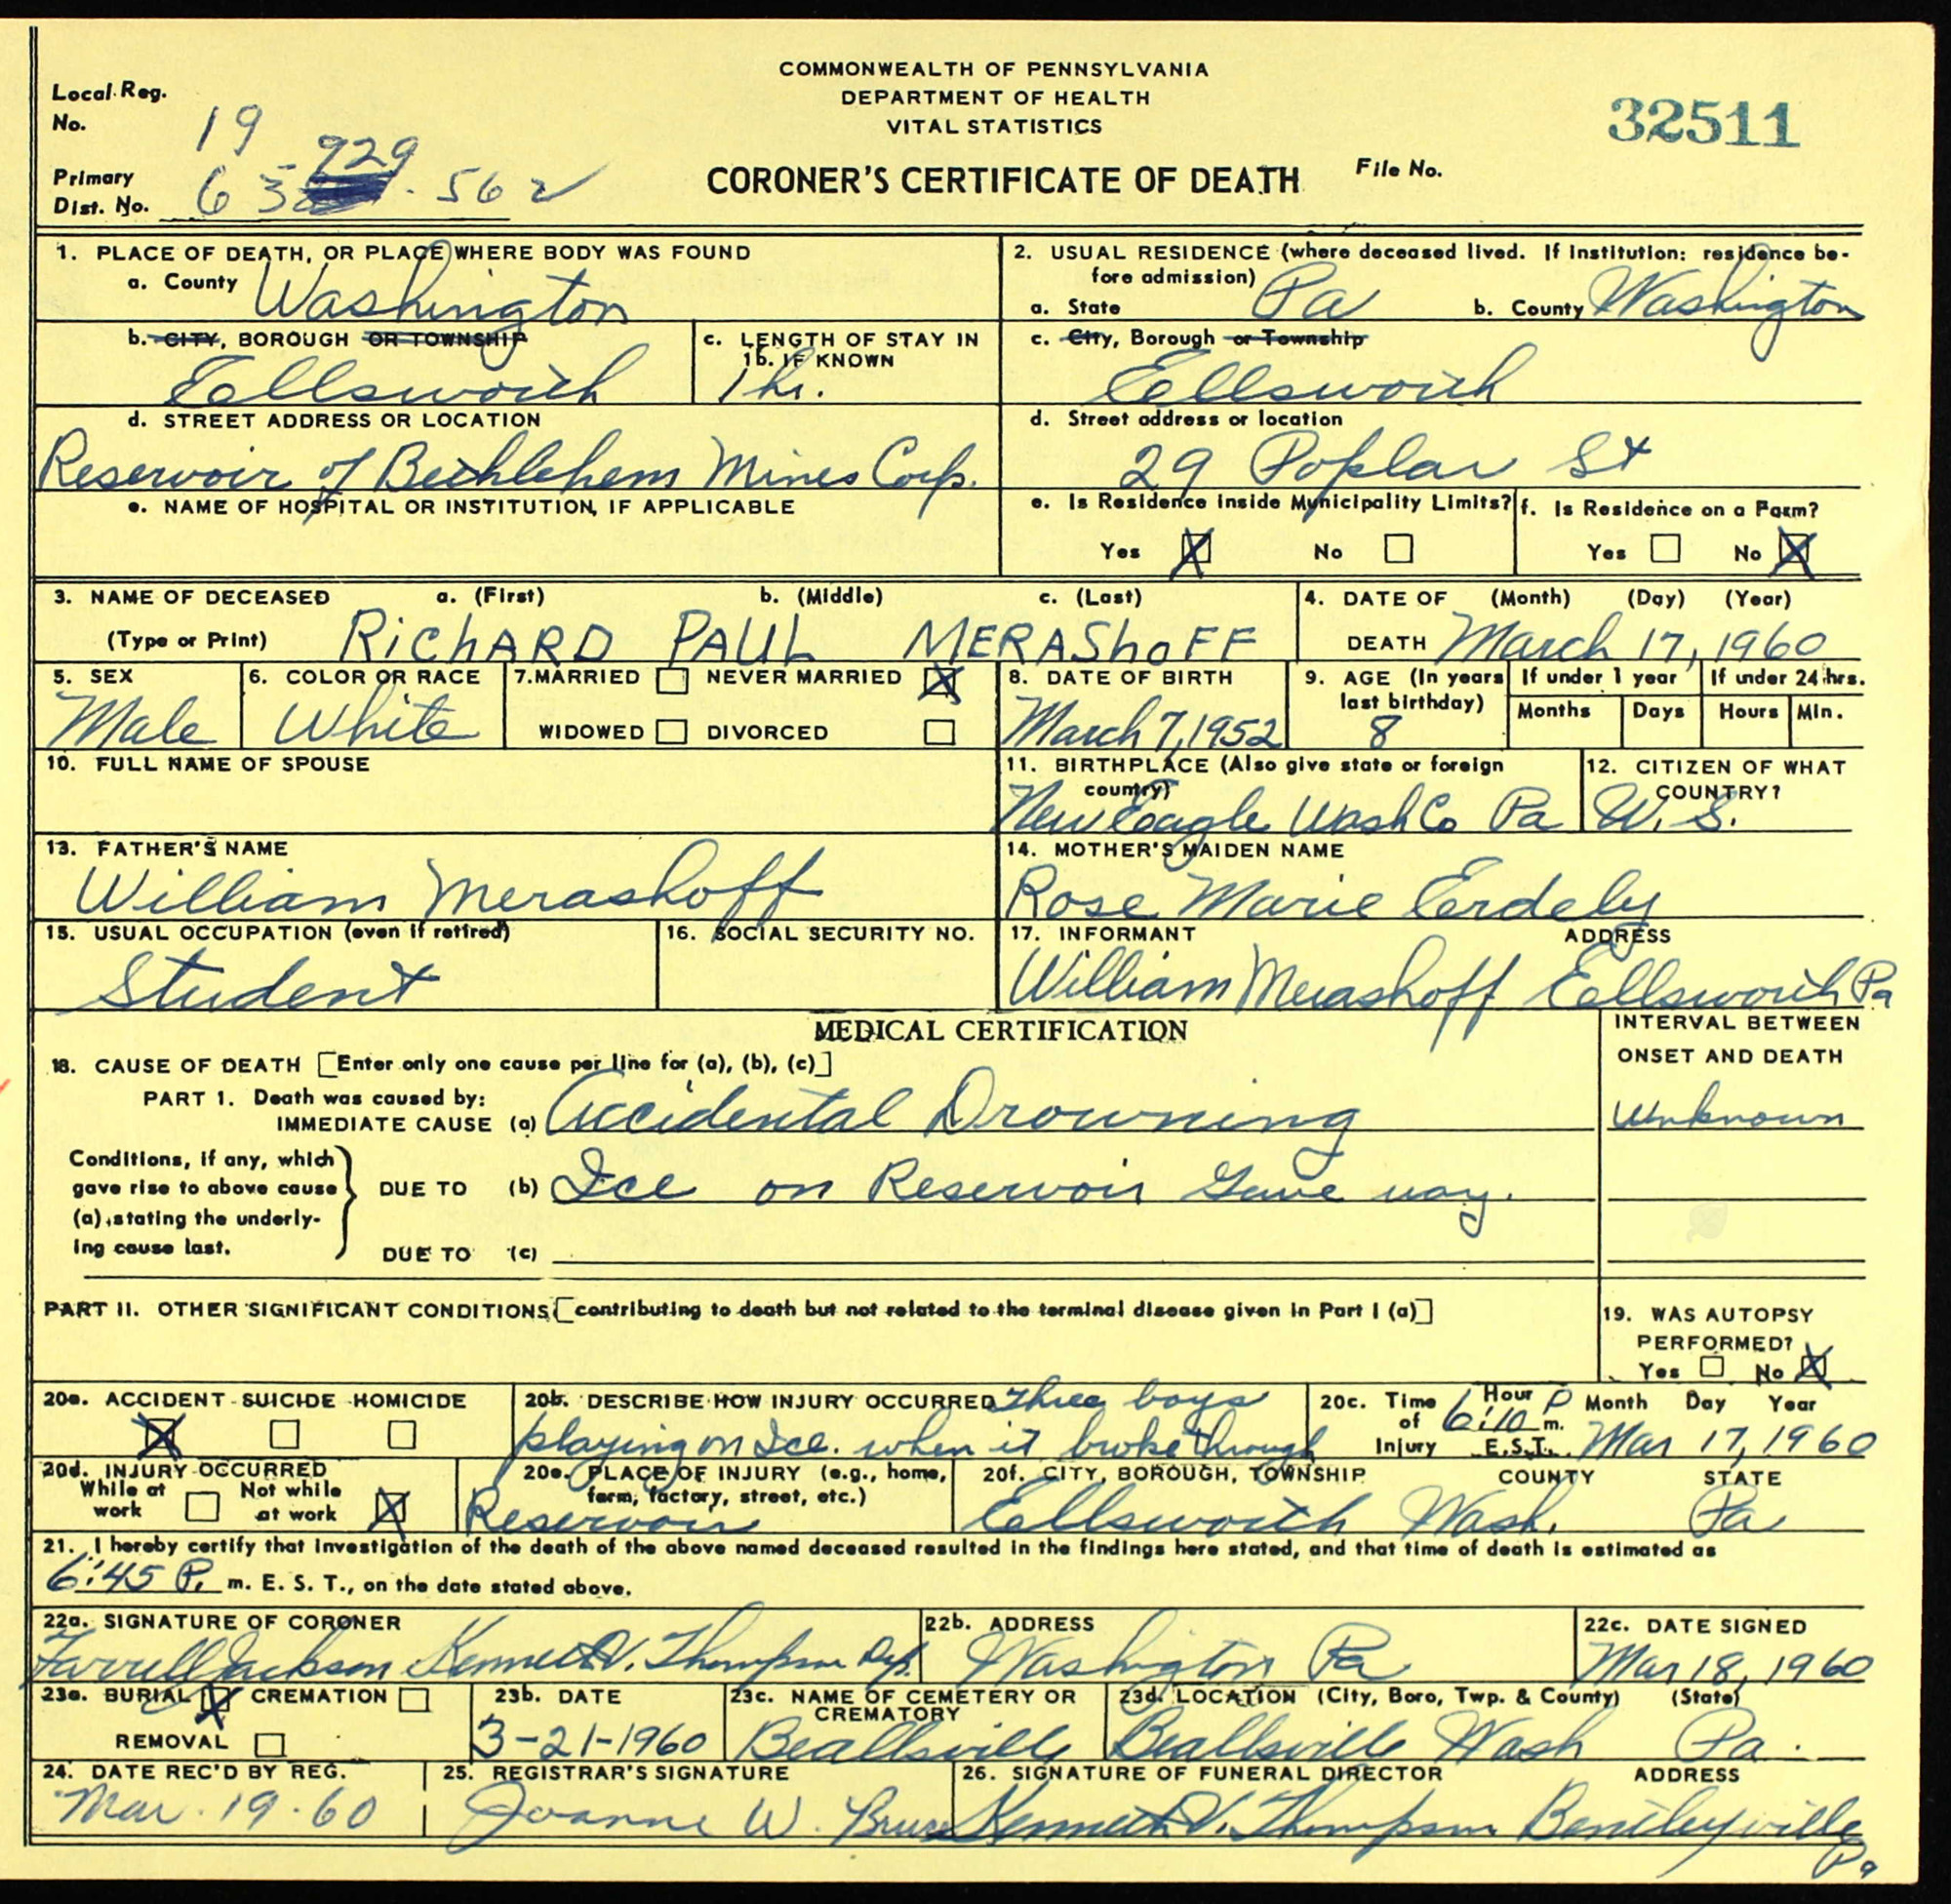 COMMONWEALTH OF PENNSYLVANIA
DEPARTMENT OF HEALTH
VITAL STATISTICS
CORONER'S CERTIFICATE OF DEATH
File No.
32511
Local Reg.
No. 19
729
Primary
Dist. No. 63 - 562
1. PLACE OF DEATH, OR PLACE WHERE BODY WAS FOUND
a. County Washington
b. CITY, BOROUGH OR TOWNSHIP
Ellsworth
c. LENGTH OF STAY IN
1b. IF KNOWN
1 hr.
d. STREET ADDRESS OR LOCATION
Reservoir of Bethlehem Mines Corp.
e. NAME OF HOSPITAL OR INSTITUTION, IF APPLICABLE
2. USUAL RESIDENCE (where deceased lived. If Institution: residence be-
fore admission)
a. State Pa b. County Washington
c. City, Borough or Township
Ellsworth
d. Street address or location
29 Poplar St
e. Is Residence inside Municipality Limits?
Yes X No
f. Is Residence on a Farm?
Yes No X
3. NAME OF DECEASED a. (First) b. (Middle) c. (Last)
(Type or Print) RichARD PAUL MERAShoFF
4. DATE OF (Month) (Day) (Year)
DEATH March 17, 1960
5. SEX
Male
6. COLOR OR RACE
White
7. MARRIED NEVER MARRIED X
WIDOWED DIVORCED
8. DATE OF BIRTH
March 7, 1952
9. AGE (In years
last birthday)
8
If under 1 year
Months Days
If under 24 hrs.
Hours Min.
10. FULL NAME OF SPOUSE
11. BIRTHPLACE (Also give state or foreign
country)
New Eagle Wash Co Pa
12. CITIZEN OF WHAT
COUNTRY?
U. S.
13. FATHER'S NAME
William Merashoff
14. MOTHER'S MAIDEN NAME
Rose Marie Erdely
15. USUAL OCCUPATION (even if retired)
Student
16. SOCIAL SECURITY NO.
17. INFORMANT ADDRESS
William Merashoff Ellsworth Pa
MEDICAL CERTIFICATION
INTERVAL BETWEEN
ONSET AND DEATH
18. CAUSE OF DEATH [Enter only one cause per line for (a), (b), (c)]
PART 1. Death was caused by:
IMMEDIATE CAUSE (a) Accidental Drowning
Unknown
Conditions, if any, which
gave rise to above cause
(a), stating the underly-
ing cause last.
DUE TO (b) Ice on Reservoir Gave way.
DUE TO (c)
PART II. OTHER SIGNIFICANT CONDITIONS [contributing to death but not related to the terminal disease given in Part I (a)]
19. WAS AUTOPSY
PERFORMED?
Yes No X
20a. ACCIDENT SUICIDE HOMICIDE
X
20b. DESCRIBE HOW INJURY OCCURRED Three boys
playing on Ice. when it broke through
20c. Time of Injury
Hour 6:10 P m. E.S.T.
Month Day Year
Mar 17, 1960
20d. INJURY OCCURRED
While at work Not while at work X
20e. PLACE OF INJURY (e.g., home,
farm, factory, street, etc.)
Reservoir
20f. CITY, BOROUGH, TOWNSHIP COUNTY STATE
Ellsworth Wash. Pa
21. I hereby certify that investigation of the death of the above named deceased resulted in the findings here stated, and that time of death is estimated as
6:45 P. m. E. S. T., on the date stated above.
22a. SIGNATURE OF CORONER
Farrell Jackson Kenneth V. Thompson Dep.
22b. ADDRESS
Washington Pa
22c. DATE SIGNED
Mar 18, 1960
23a. BURIAL X CREMATION
REMOVAL
23b. DATE
3-21-1960
23c. NAME OF CEMETERY OR
CREMATORY
Beallsville
23d. LOCATION (City, Boro, Twp. & County) (State)
Beallsville Wash Pa.
24. DATE REC'D BY REG.
Mar. 19. 60
25. REGISTRAR'S SIGNATURE
Joanne W.
26. SIGNATURE OF FUNERAL DIRECTOR ADDRESS
Kenneth V. Thompson Bentleyville
Pa